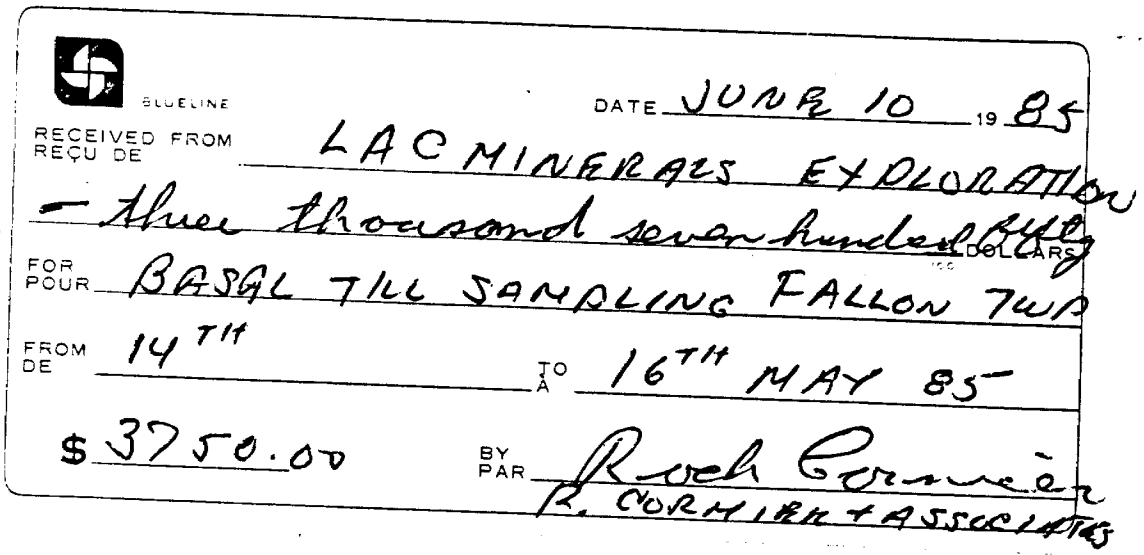 BLUELINE
DATE JUNE 10 19 85
RECEIVED FROM LAC MINERALS EXPLORATION
REÇU DE
- three thousand seven hundred fifty DOLLARS
100
FOR BASAL TILL SAMPLING FALLON TWP
POUR
FROM 14TH TO 16TH MAY 85
DE À
$ 3750.00 BY Roch Cormier
PAR
R. CORMIER + ASSOCIATES